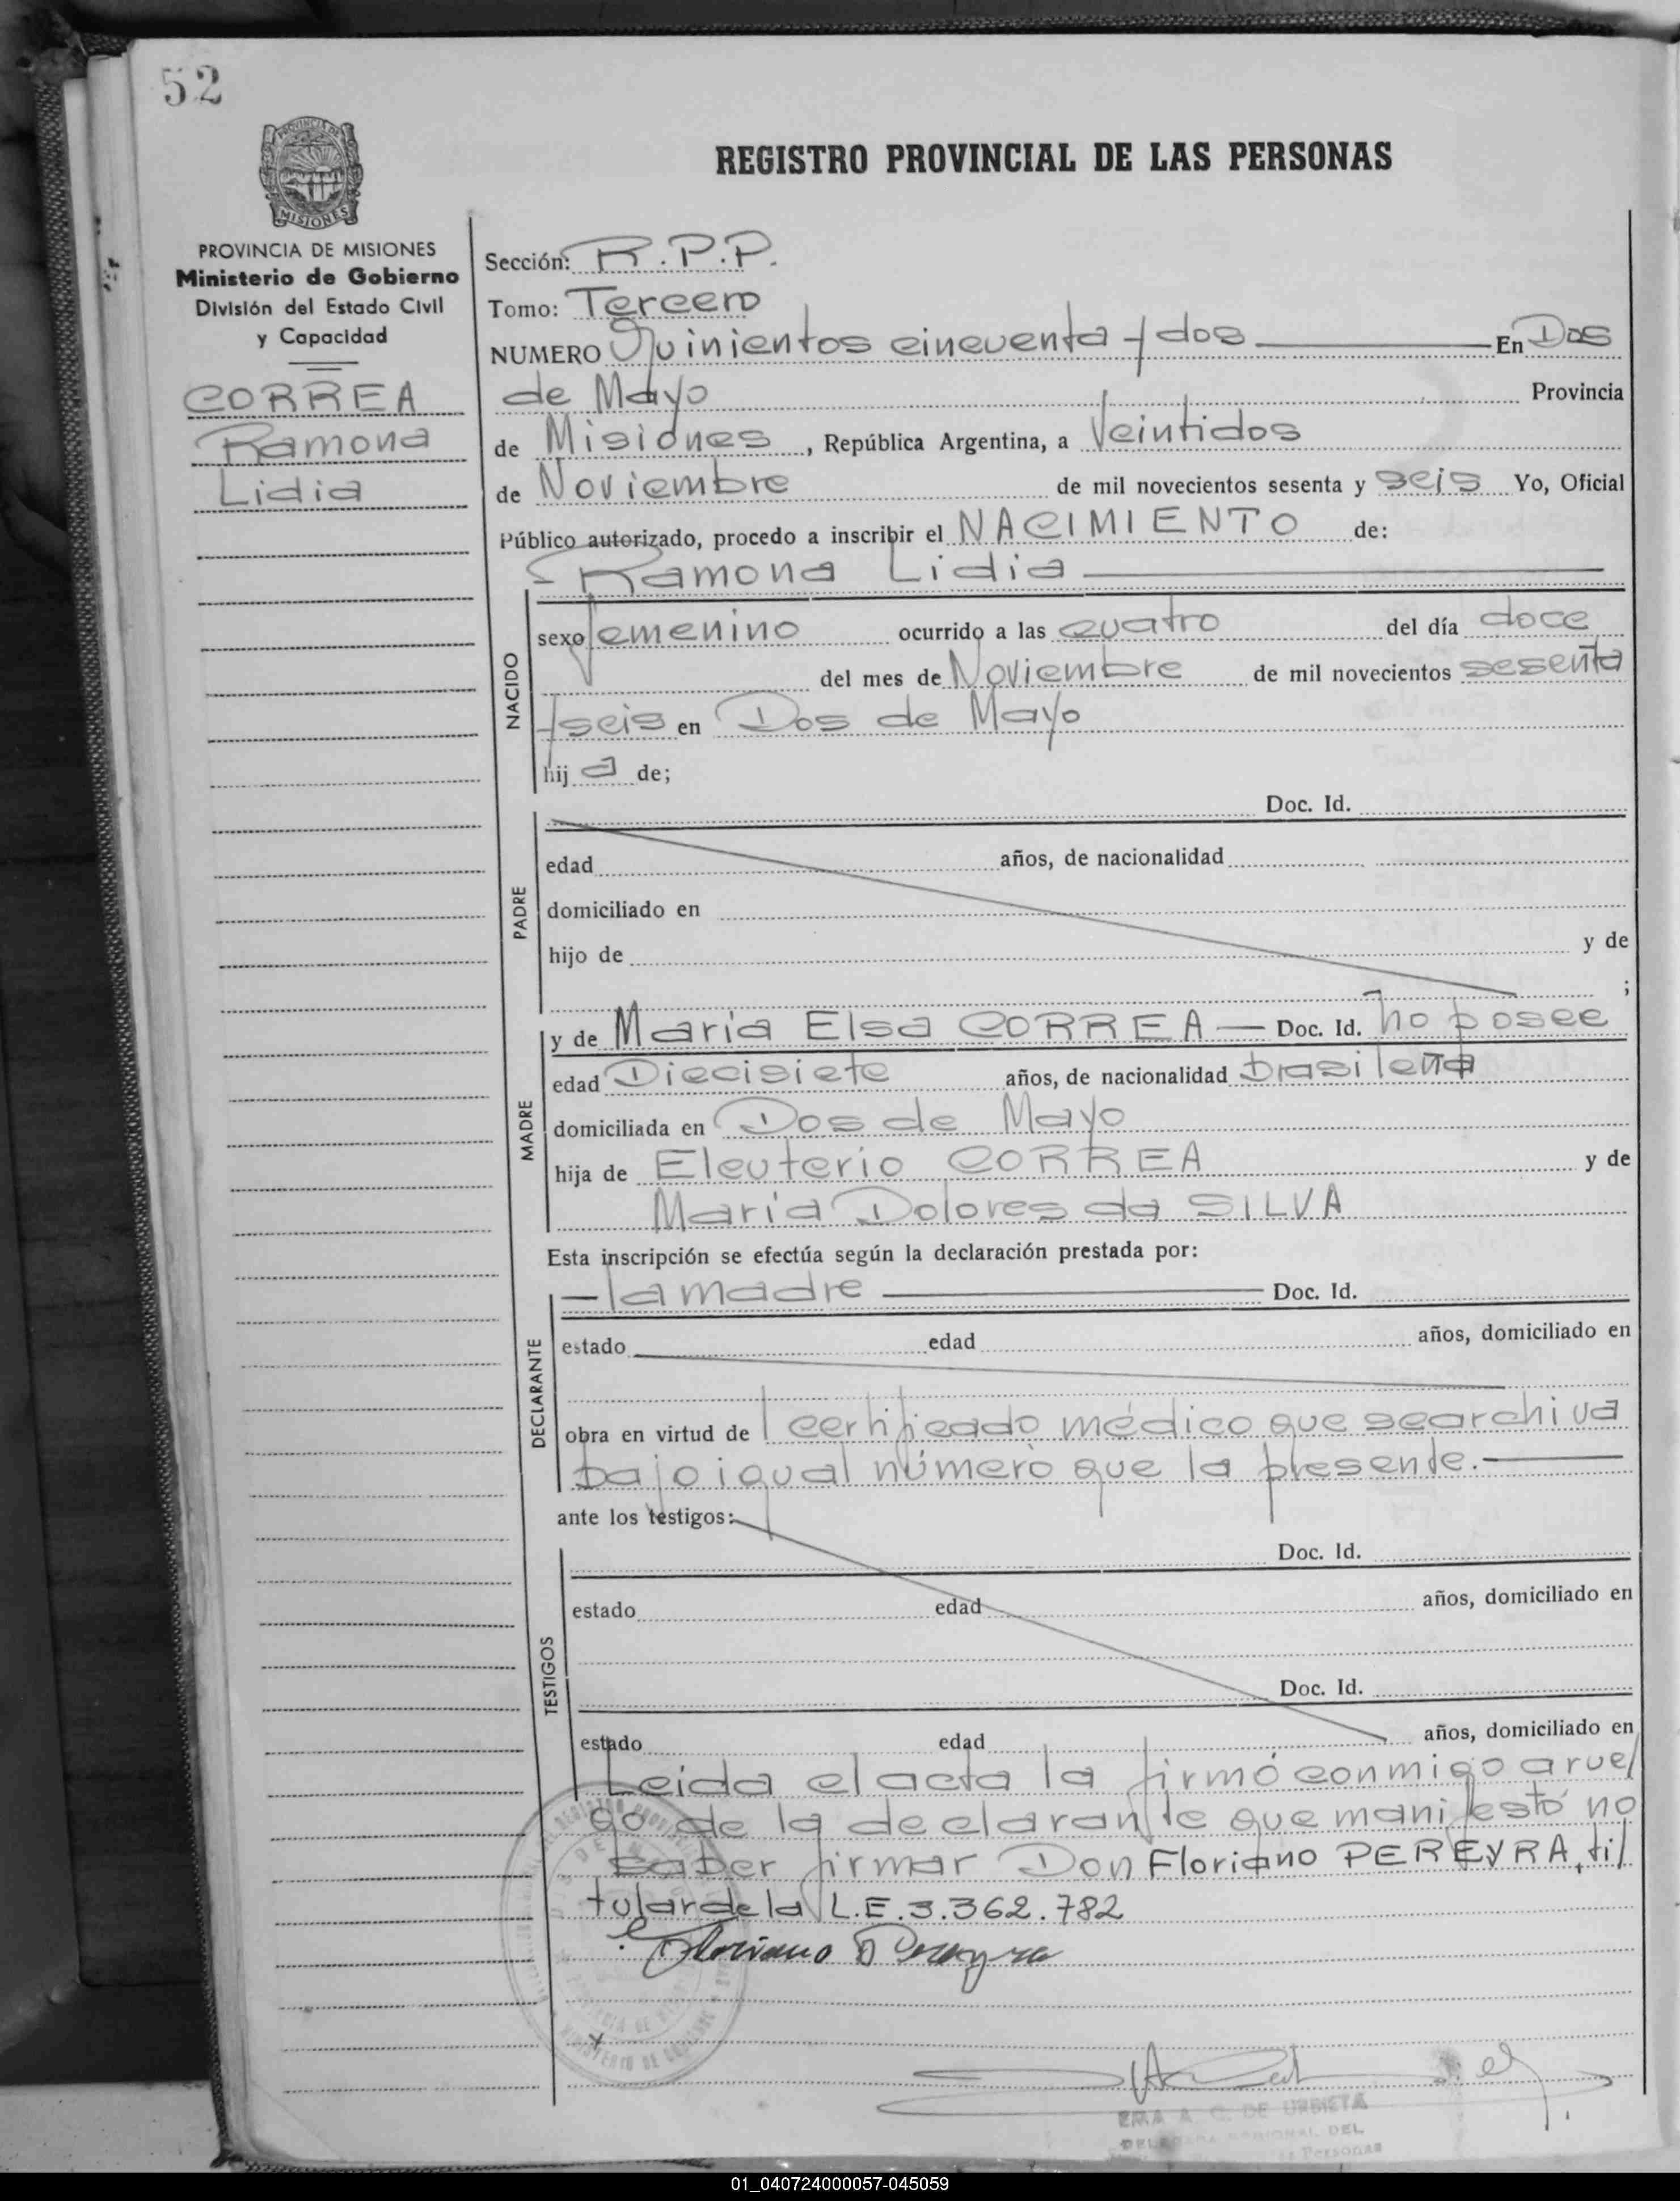 52
PROVINCIA DE
MISIONES
REGISTRO PROVINCIAL DE LAS PERSONAS
PROVINCIA DE MISIONES
Ministerio de Gobierno
División del Estado Civil
y Capacidad
CORREA
Ramona
Lidia
Sección: R.P.P.
Tomo: Tercero
NUMERO Quinientos cincuenta y dos En Dos
de Mayo Provincia
de Misiones, República Argentina, a Veintidos
de Noviembre de mil novecientos sesenta y seis Yo, Oficial
Público autorizado, procedo a inscribir el NACIMIENTO de:
Ramona Lidia
NACIDO
sexo femenino ocurrido a las cuatro del día doce
del mes de Noviembre de mil novecientos sesenta
y seis en Dos de Mayo
hij a de;
PADRE
Doc. Id.
edad años, de nacionalidad
domiciliado en
hijo de y de
;
MADRE
y de Maria Elsa CORREA — Doc. Id. no posee
edad Diecisiete años, de nacionalidad brasileña
domiciliada en Dos de Mayo
hija de Eleuterio CORREA y de
Maria Dolores da SILVA
Esta inscripción se efectúa según la declaración prestada por:
DECLARANTE
— la madre — Doc. Id.
estado edad años, domiciliado en
obra en virtud de l certificado médico que se archiva
bajo igual número que la presente. —
ante los testigos:
TESTIGOS
Doc. Id.
estado edad años, domiciliado en
Doc. Id.
estado edad años, domiciliado en
Leida el acta la firmó conmigo a rue/
go de la declarante que manifestó no
saber firmar Don Floriano PEREYRA, ti/
tular de la L.E. 3.362.782
Floriano Pereyra
ERA A C. DE URBIETA
DEL
Personas
01_040724000057-045059